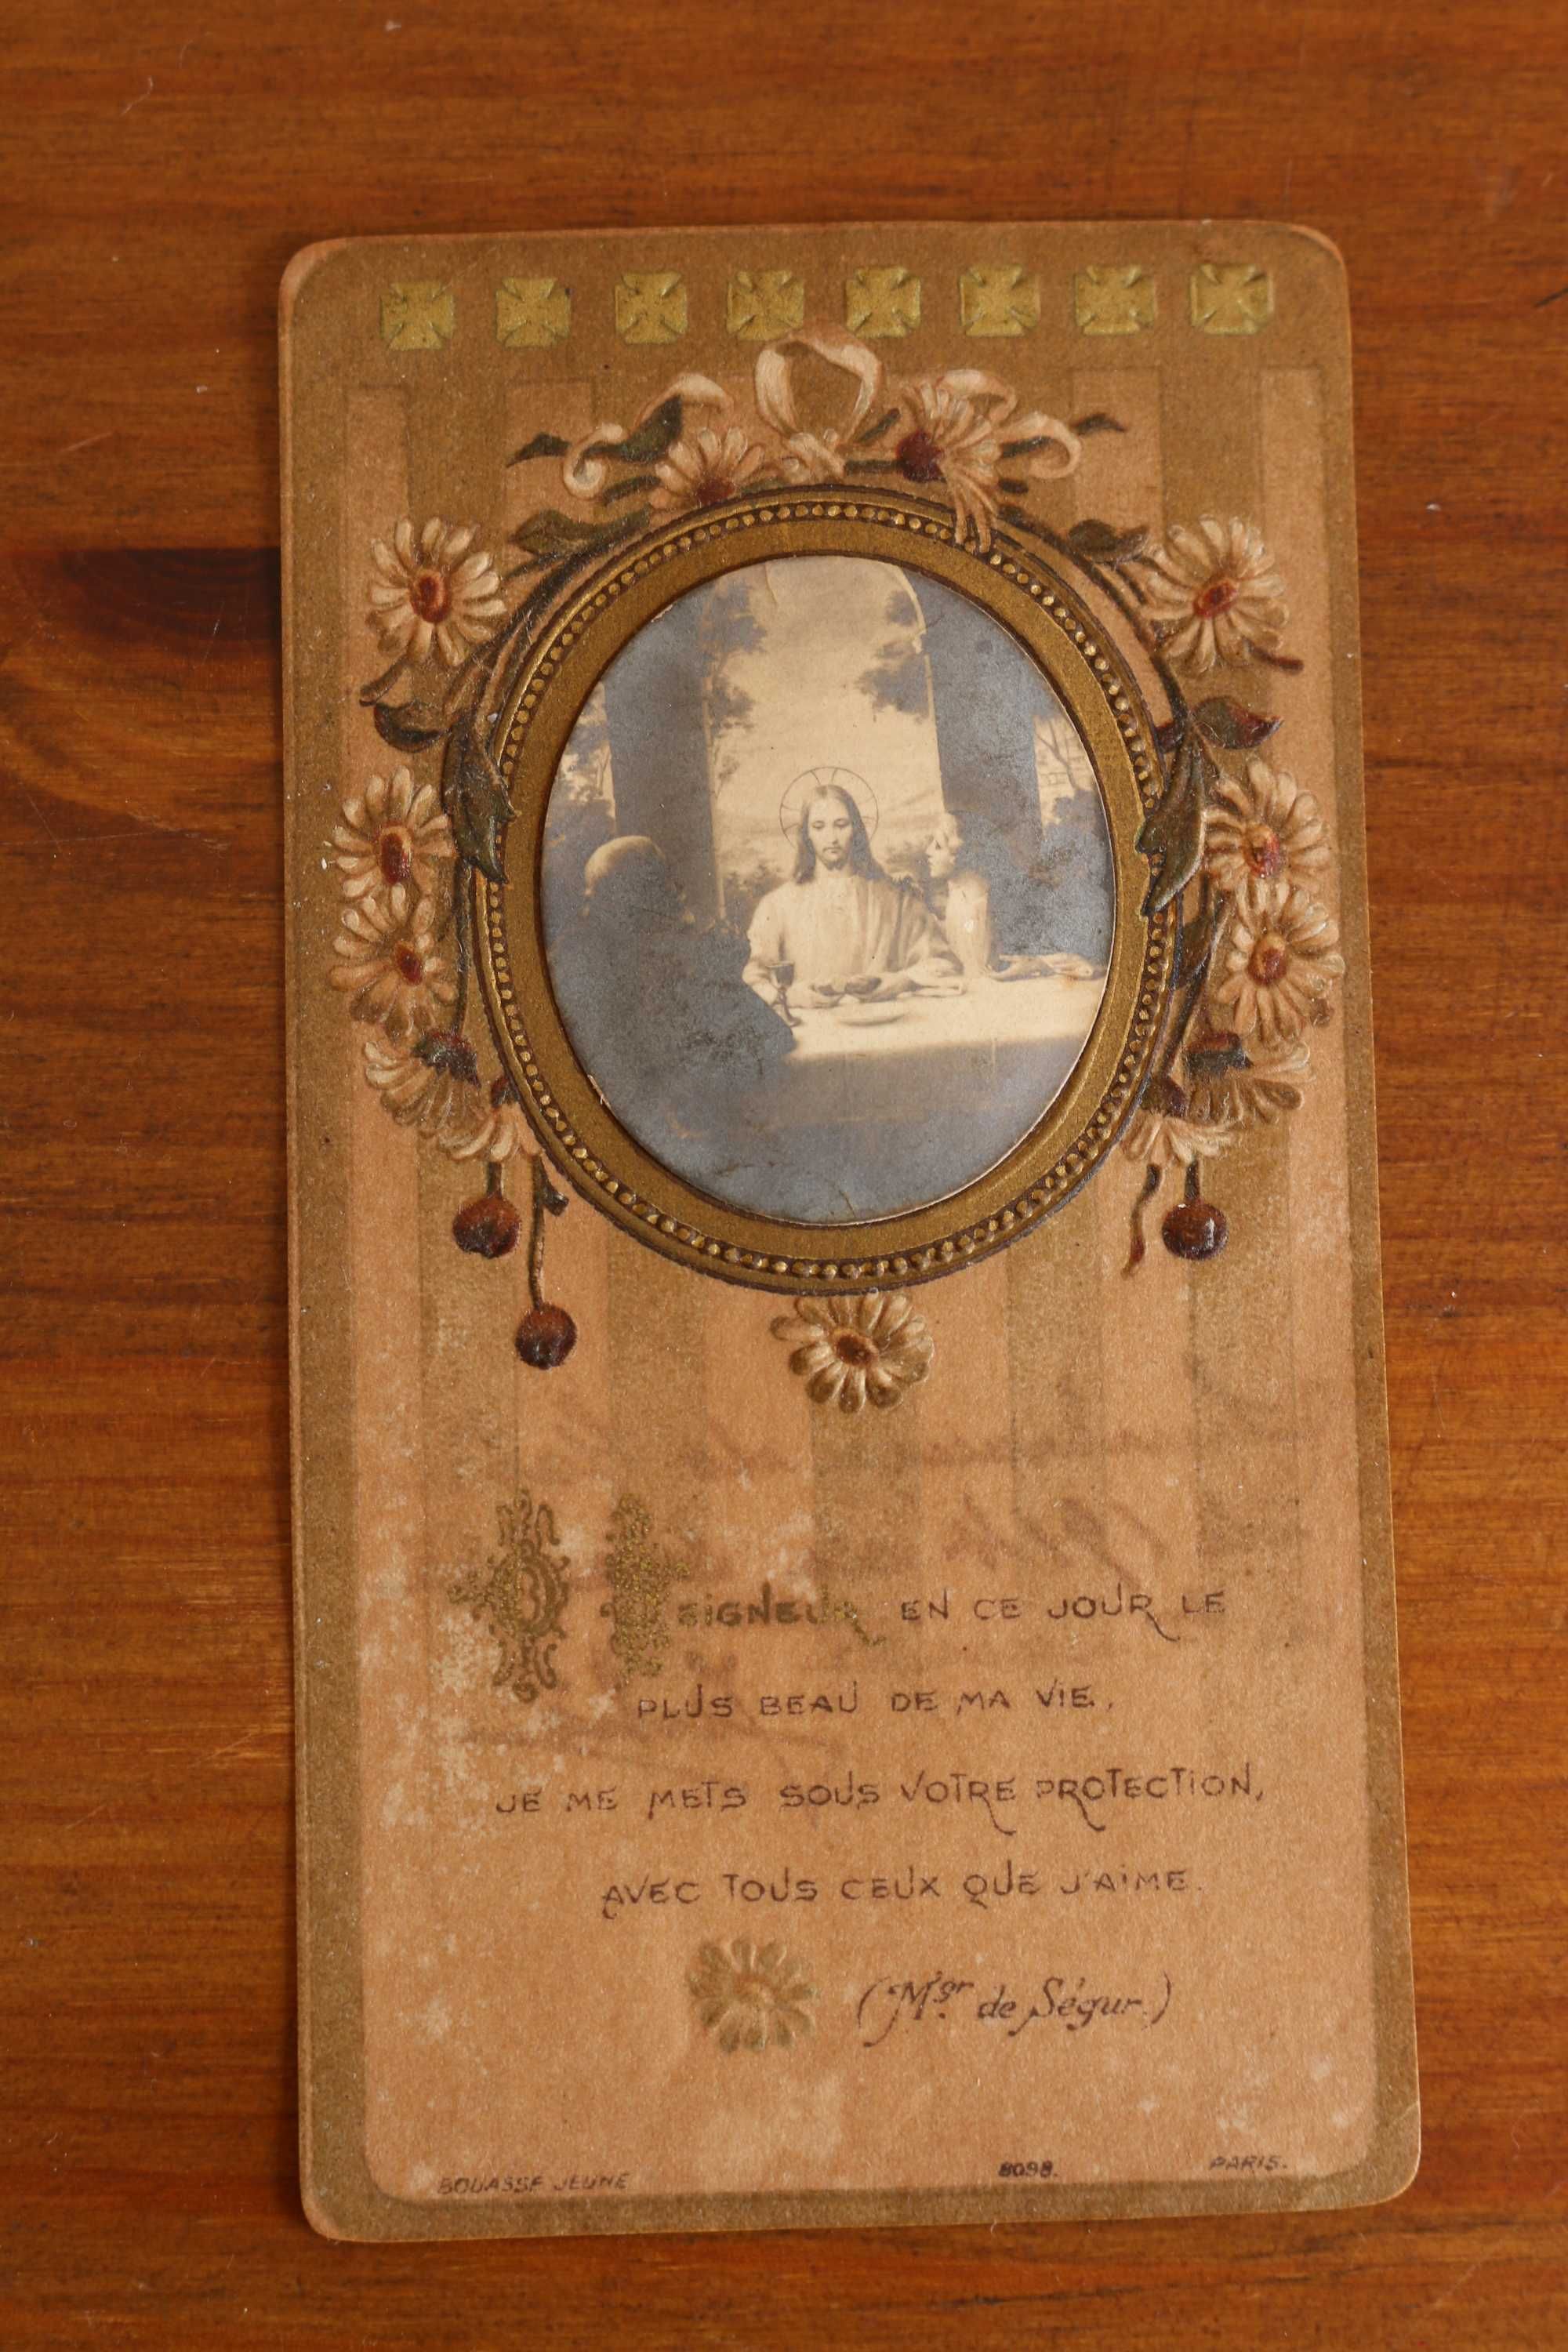 O SEIGNEUR, EN CE JOUR LE
PLUS BEAU DE MA VIE,
JE ME METS SOUS VOTRE PROTECTION,
AVEC TOUS CEUX QUE J'AIME.
(Mgr de Ségur.)
BOUASSE JEUNE 8098. PARIS.